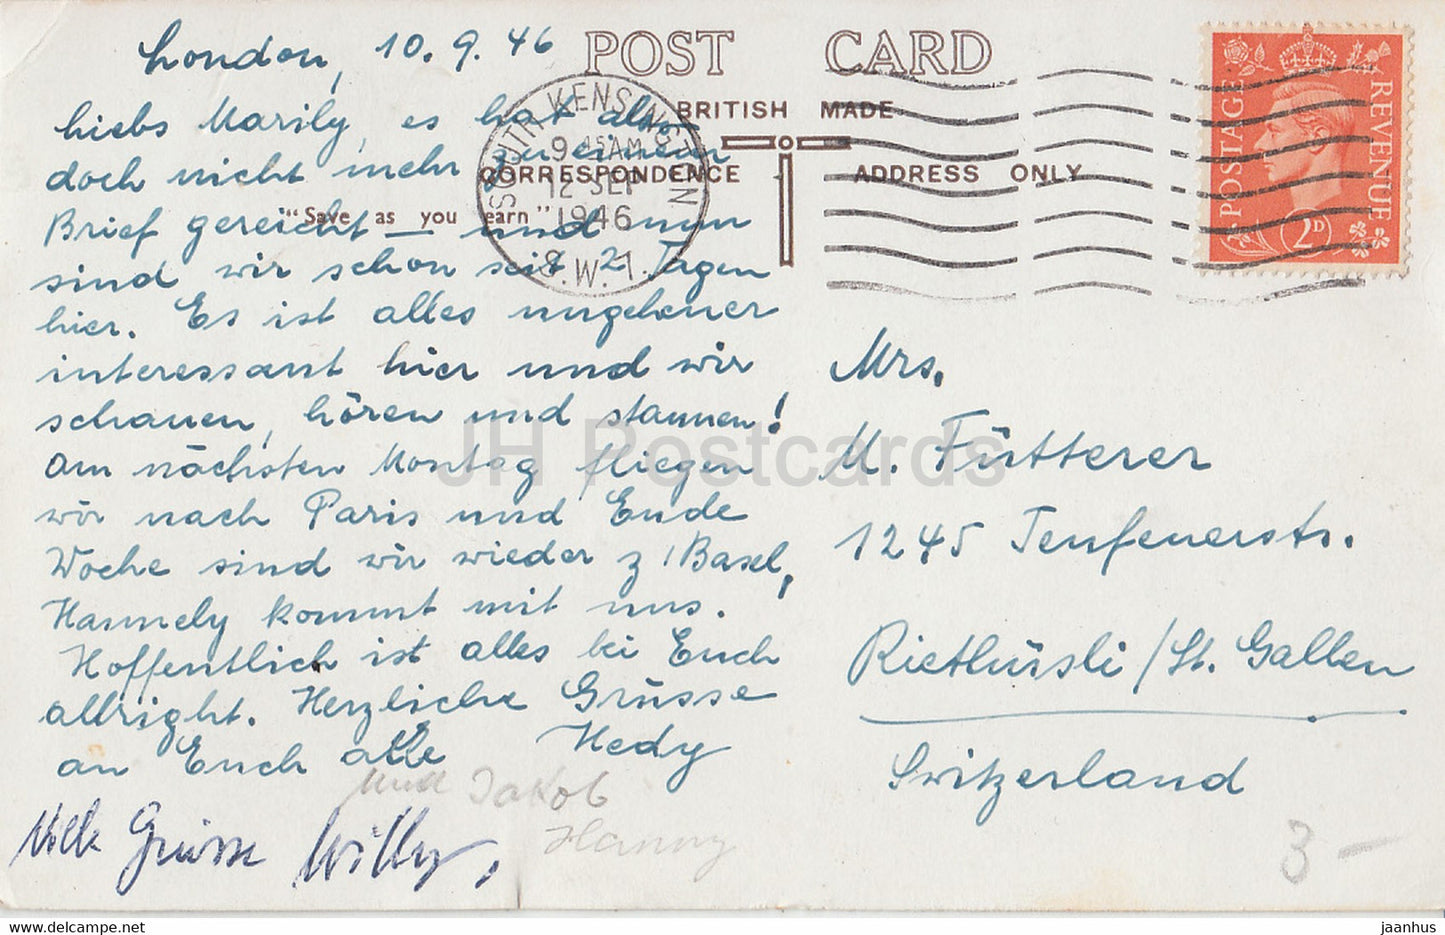 London, 10.9.46
POST CARD
BRITISH MADE
CORRESPONDENCE
ADDRESS ONLY
"Save as you earn"
SOUTH KENSINGTON
9 45 AM
12 SEP
1946
S.W.7.
POSTAGE
REVENUE
2D
liebs Marily, es hat also
doch nicht mehr zu einem
Brief gereicht — und nun
sind wir schon seit 2 Tagen
hier. Es ist alles ungeheuer
interessant hier und wir
schauen, hören und staunen!
Am nächsten Montag fliegen
wir nach Paris und Ende
Woche sind wir wieder z'Basel,
Hannely kommt mit uns.
Hoffentlich ist alles bei Euch
allright. Herzliche Grüsse
an Euch alle Hedy
und Jakob
Hanny
Grüsse Willy,
Mrs.
M. Fütterer
1245 Teufenerstr.
Riethüsli / St. Gallen
Switzerland
3 —
JH Postcards
www.hippostcard.com
jaanhus